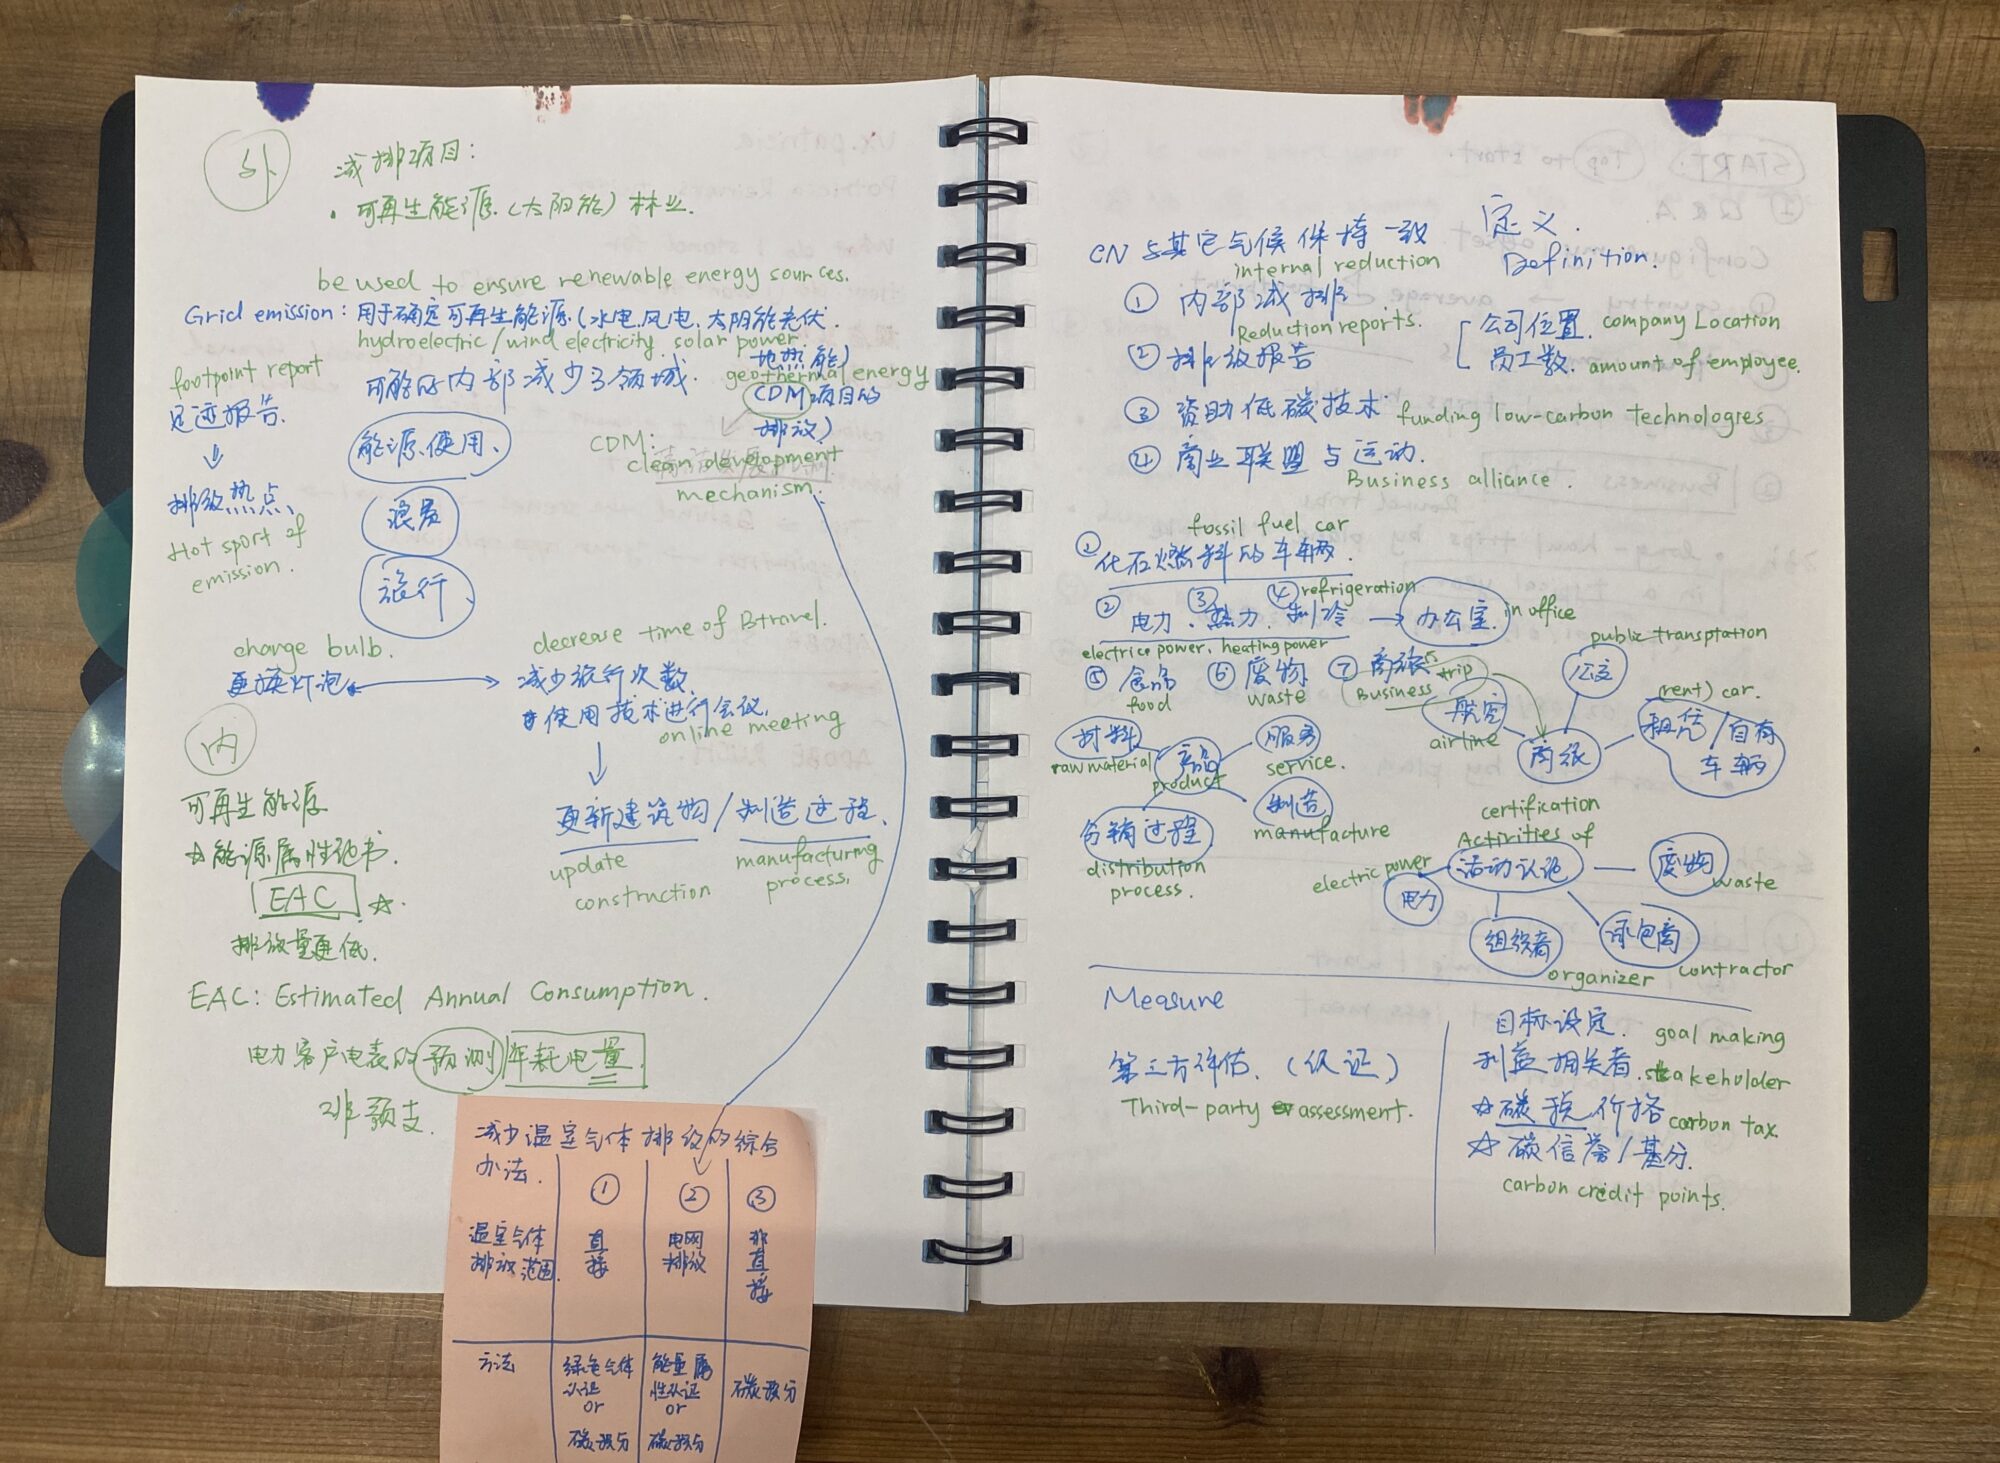 外
减排项目:
· 可再生能源.(太阳能) 林业.
be used to ensure renewable energy sources.
Grid emission: 用于确定可再生能源.(水电.风电.太阳能光伏.
hydroelectric/wind electricity. solar power.
地热能)
geothermal energy
footpoint report
足迹报告.
可能的内部减少3领域.
CDM 项目的
排放)
能源使用、
CDM:
clean development
mechanism.
排放热点、
Hot sport of
emission.
浪费
旅行
change bulb.
更换灯泡
decrease time of Btravel.
减少旅行次数.
使用技术进行会议.
online meeting
内
可再生能源
☆能源属性证书.
EAC ☆.
排放量更低.
更新建筑物/制造过程.
update
construction
manufacturing
process.
EAC: Estimated Annual Consumption.
电力客户电表的预测年耗电量
非预支.
减少温室气体排放的综合
办法.
① ② ③
温室气体
排放范围.
直接
电网
排放
非直接
方法
绿色气体
认证
or
碳积分
能量属
性认证
or
碳积分
碳积分
CN 与其它气候保持一致
定义.
Definition.
internal reduction
① 内部减排
Reduction reports.
② 排放报告
公司位置. company Location
员工数. amount of employee.
③ 资助低碳技术 funding low-carbon technologies
④ 商业联盟与运动.
Business alliance.
fossil fuel car
化石燃料的车辆.
② 电力. ③ 热力. ④ 制冷 → 办公室. in office
refrigeration
electrice power. heating power
⑤ 食品
food
⑥ 废物
waste
⑦ 商旅
Business trip
public transptation
公交
航空
airline
商旅
(rent) car.
租赁/自有
车辆
材料
raw material
产品
product
服务
service.
制造
manufacture
分销过程
distribution
process.
certification
Activities of
活动认证
electric power
电力
废物
waste
组织者
organizer
承包商
contractor
Measure
第三方评估. (认证)
Third-party assessment.
目标设定. goal making
利益相关者. stakeholder
☆碳税价格 carbon tax.
☆碳信誉/基分.
carbon credit points.